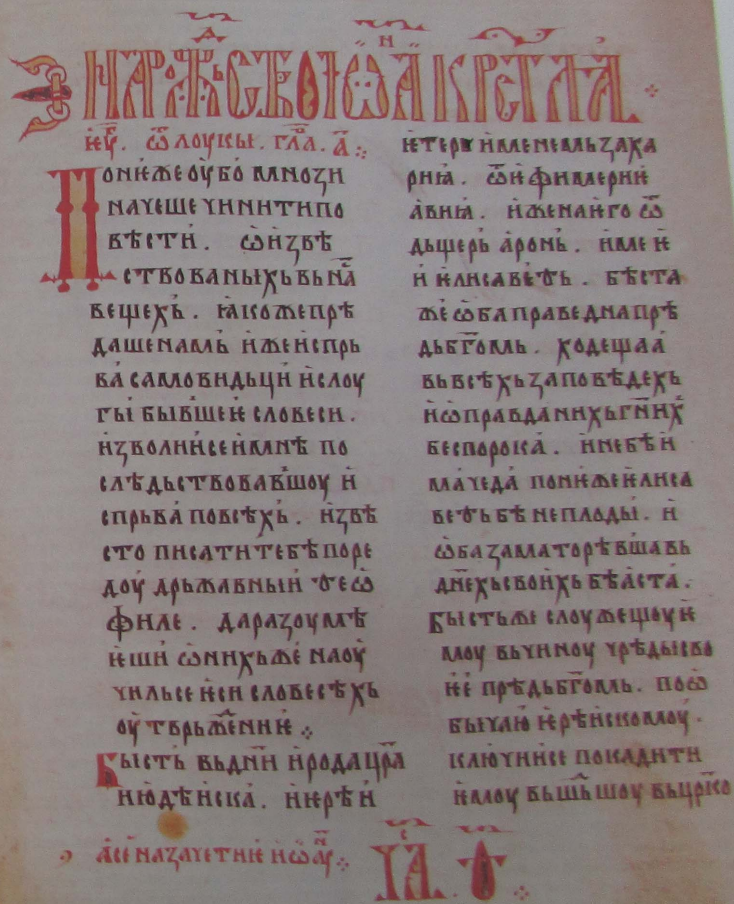 НА РОЖДЬСТВО ІѠАНА КРСТЛꙖ
ѥѵⷢ҇. ѿ лоукы. гла҃. а҃
Понѥже оубо мнози
начеше чинити по
вѣсти. ѡ извѣ
ствованыхь вь на
вещехь. ꙗкоже прѣ
даше намь иже испрь
ва самовидьци и слоу
гы бывше ѥ словеси.
изволи се и мнѣ по
слѣдьствовавшоу и
спрьва по всѣхь. извѣ
сто писати тебѣ по ре
доу дрьжавныи ѳеѡ
филе. да разоумѣ
ѥши ѡ нихьже наоу
чиль се ѥси словесѣхь
оутврьжⷣениѥ
Бысть вь дни ирода цр҃а
июдѣиска. иѥрѣи
ѥтерь именемь заха
риꙗ. ѿ ѥфимериѥ
авиꙗ. и жена ѥго ѿ
дьщерь аронь. и име ѥ
и ѥлисавеѳь. бѣста
же ѡба праведна прѣ
дь бг҃омь. ходеща а
вь всѣхь заповѣдехь
и ѡправданихь гн҃ихь
бес порока. и не бѣ и
ма чеда понѥже ѥлиса
веѳь бѣ неплоды. и
ѡба заматорѣвша вь
днехь своихь бѣаста.
Бысть же слоужещоу ѥ
моу вь чиноу чрѣды сво
ѥѥ прѣдь бг҃омь. по ѡ
бычаю ѥрѣискомоу.
ключи се покадити
ѥмоу вьшьшоу вь црⷦ҇ко
а сеназачетиѥ иѡан